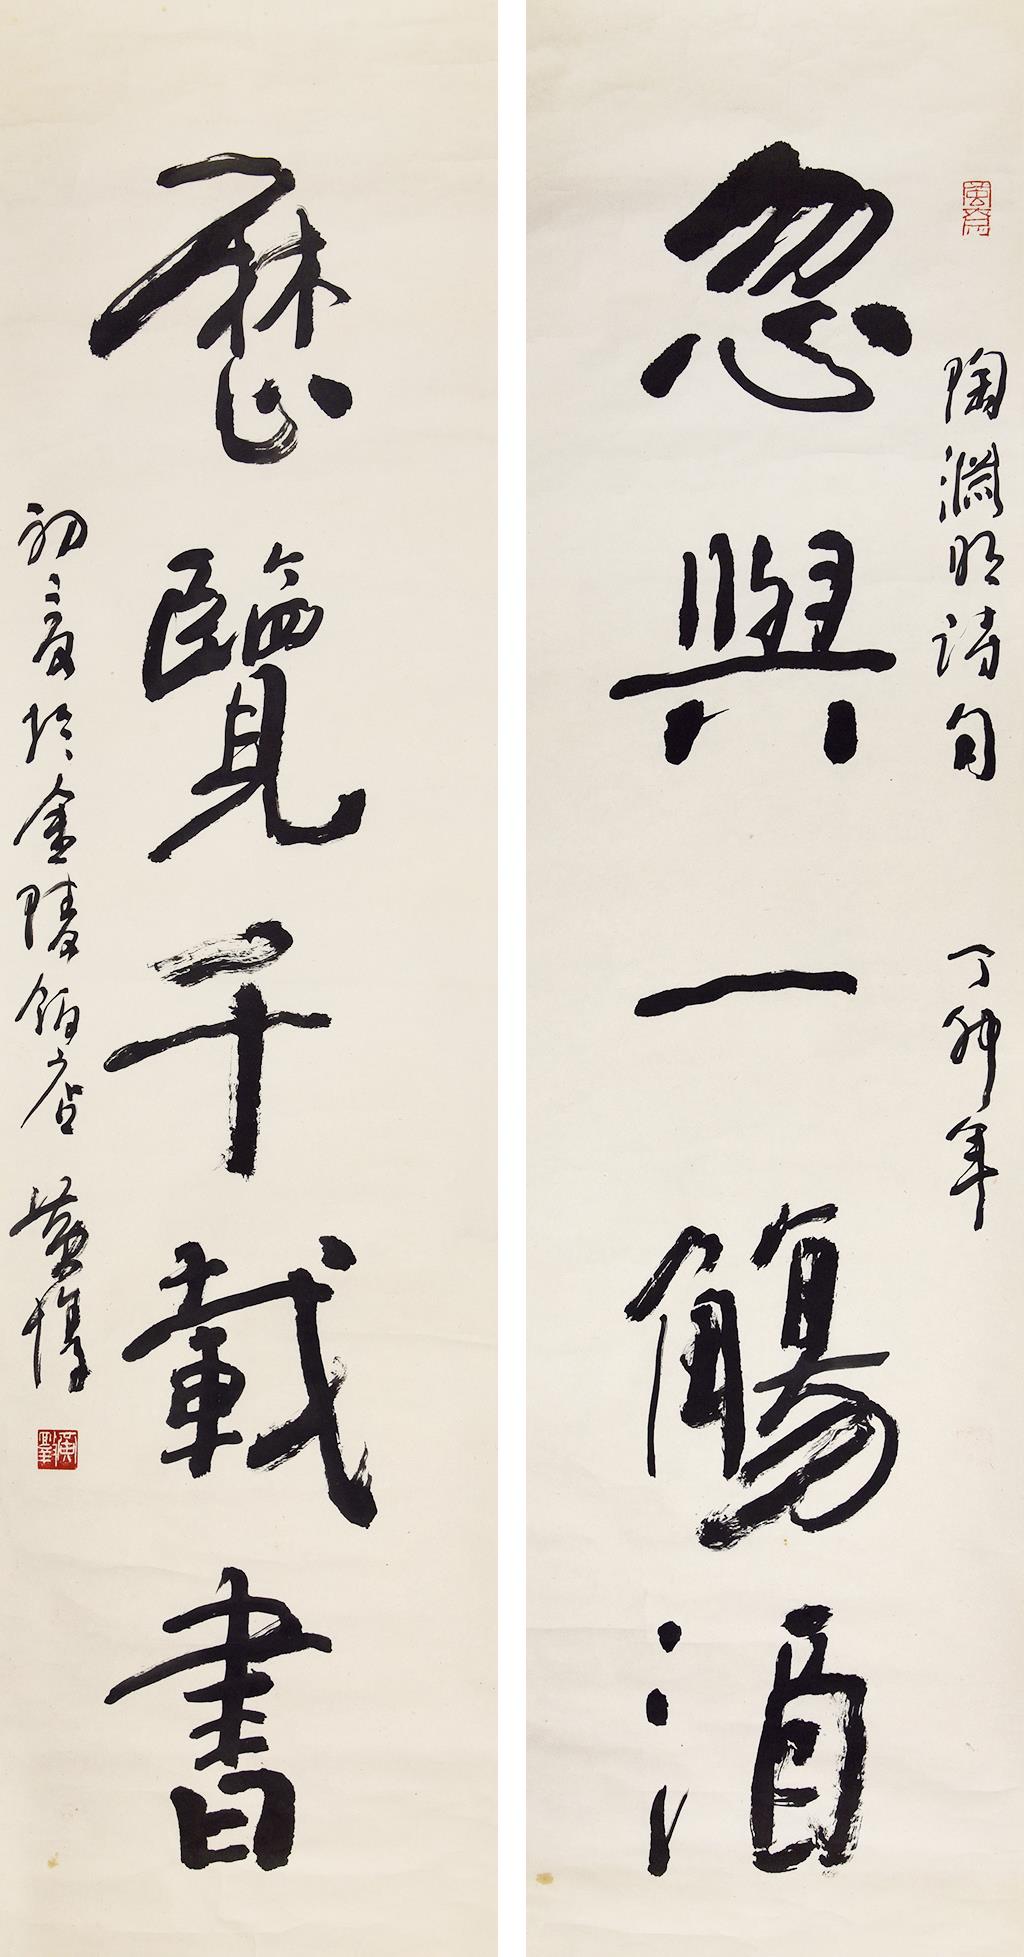 陶淵明詩句 丁卯年
忽與一觴酒
歷覽千載書
初夏於金陵飯店 黃惇